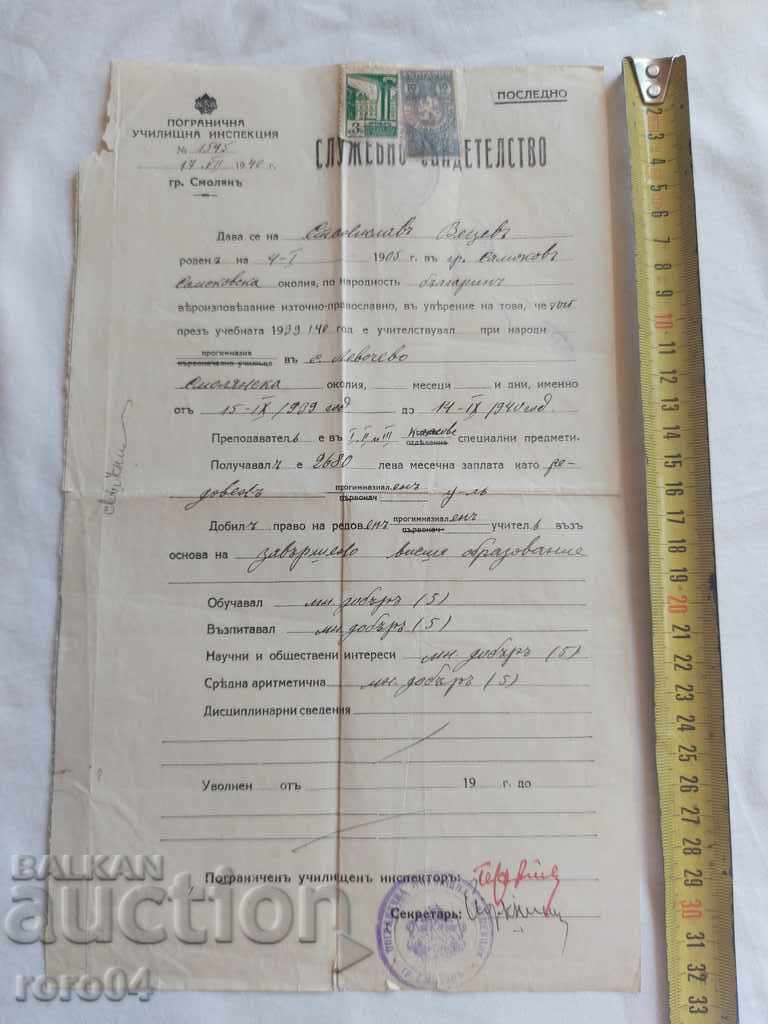 ПОГРАНИЧНА
УЧИЛИЩНА ИНСПЕКЦИЯ
№ 1545
17.VII 1940 г.
гр. Смолянъ
ПОСЛЕДНО
СЛУЖЕБНО СВИДЕТЕЛСТВО
Дава се на Вецевъ
роденъ на 4-I 1905 г. въ гр. Самоковъ
Самоковска околия, по народность българинъ
вѣроизповѣдание източно-православно, въ увѣрение на това, че той
презъ учебната 1939/40 год е учителствувал при народн
прогимназия
първоначално училище въ с. Левочево
Смолянска околия, месеци и дни, именно
отъ 15-IX 1939 год до 14-IX 1940 год.
Преподавателъ е въ I, II и III класове
отдѣление специални предмети.
Получавалъ е 2680 лева месечна заплата като ре-
довенъ прогимназиаленъ
първонач у-лъ
Добилъ право на редовенъ прогимназиаленъ
първонач учителъ възъ
основа на завършено висше образование
Обучавал мн. добъръ (5)
Възпитавал мн. добъръ (5)
Научни и обществени интереси мн. добъръ (5)
Срѣдна аритметична мн. добъръ (5)
Дисциплинарни сведения
Уволнен отъ 19 г. до
Пограниченъ училищен инспекторъ:
Секретарь:
BALKAN
auction
roro04
2 3 4 5 6 7 8 9 10 11 12 13 14 15 16 17 18 19 20 21 22 23 24 25 26 27 28 29 30 31 32 33